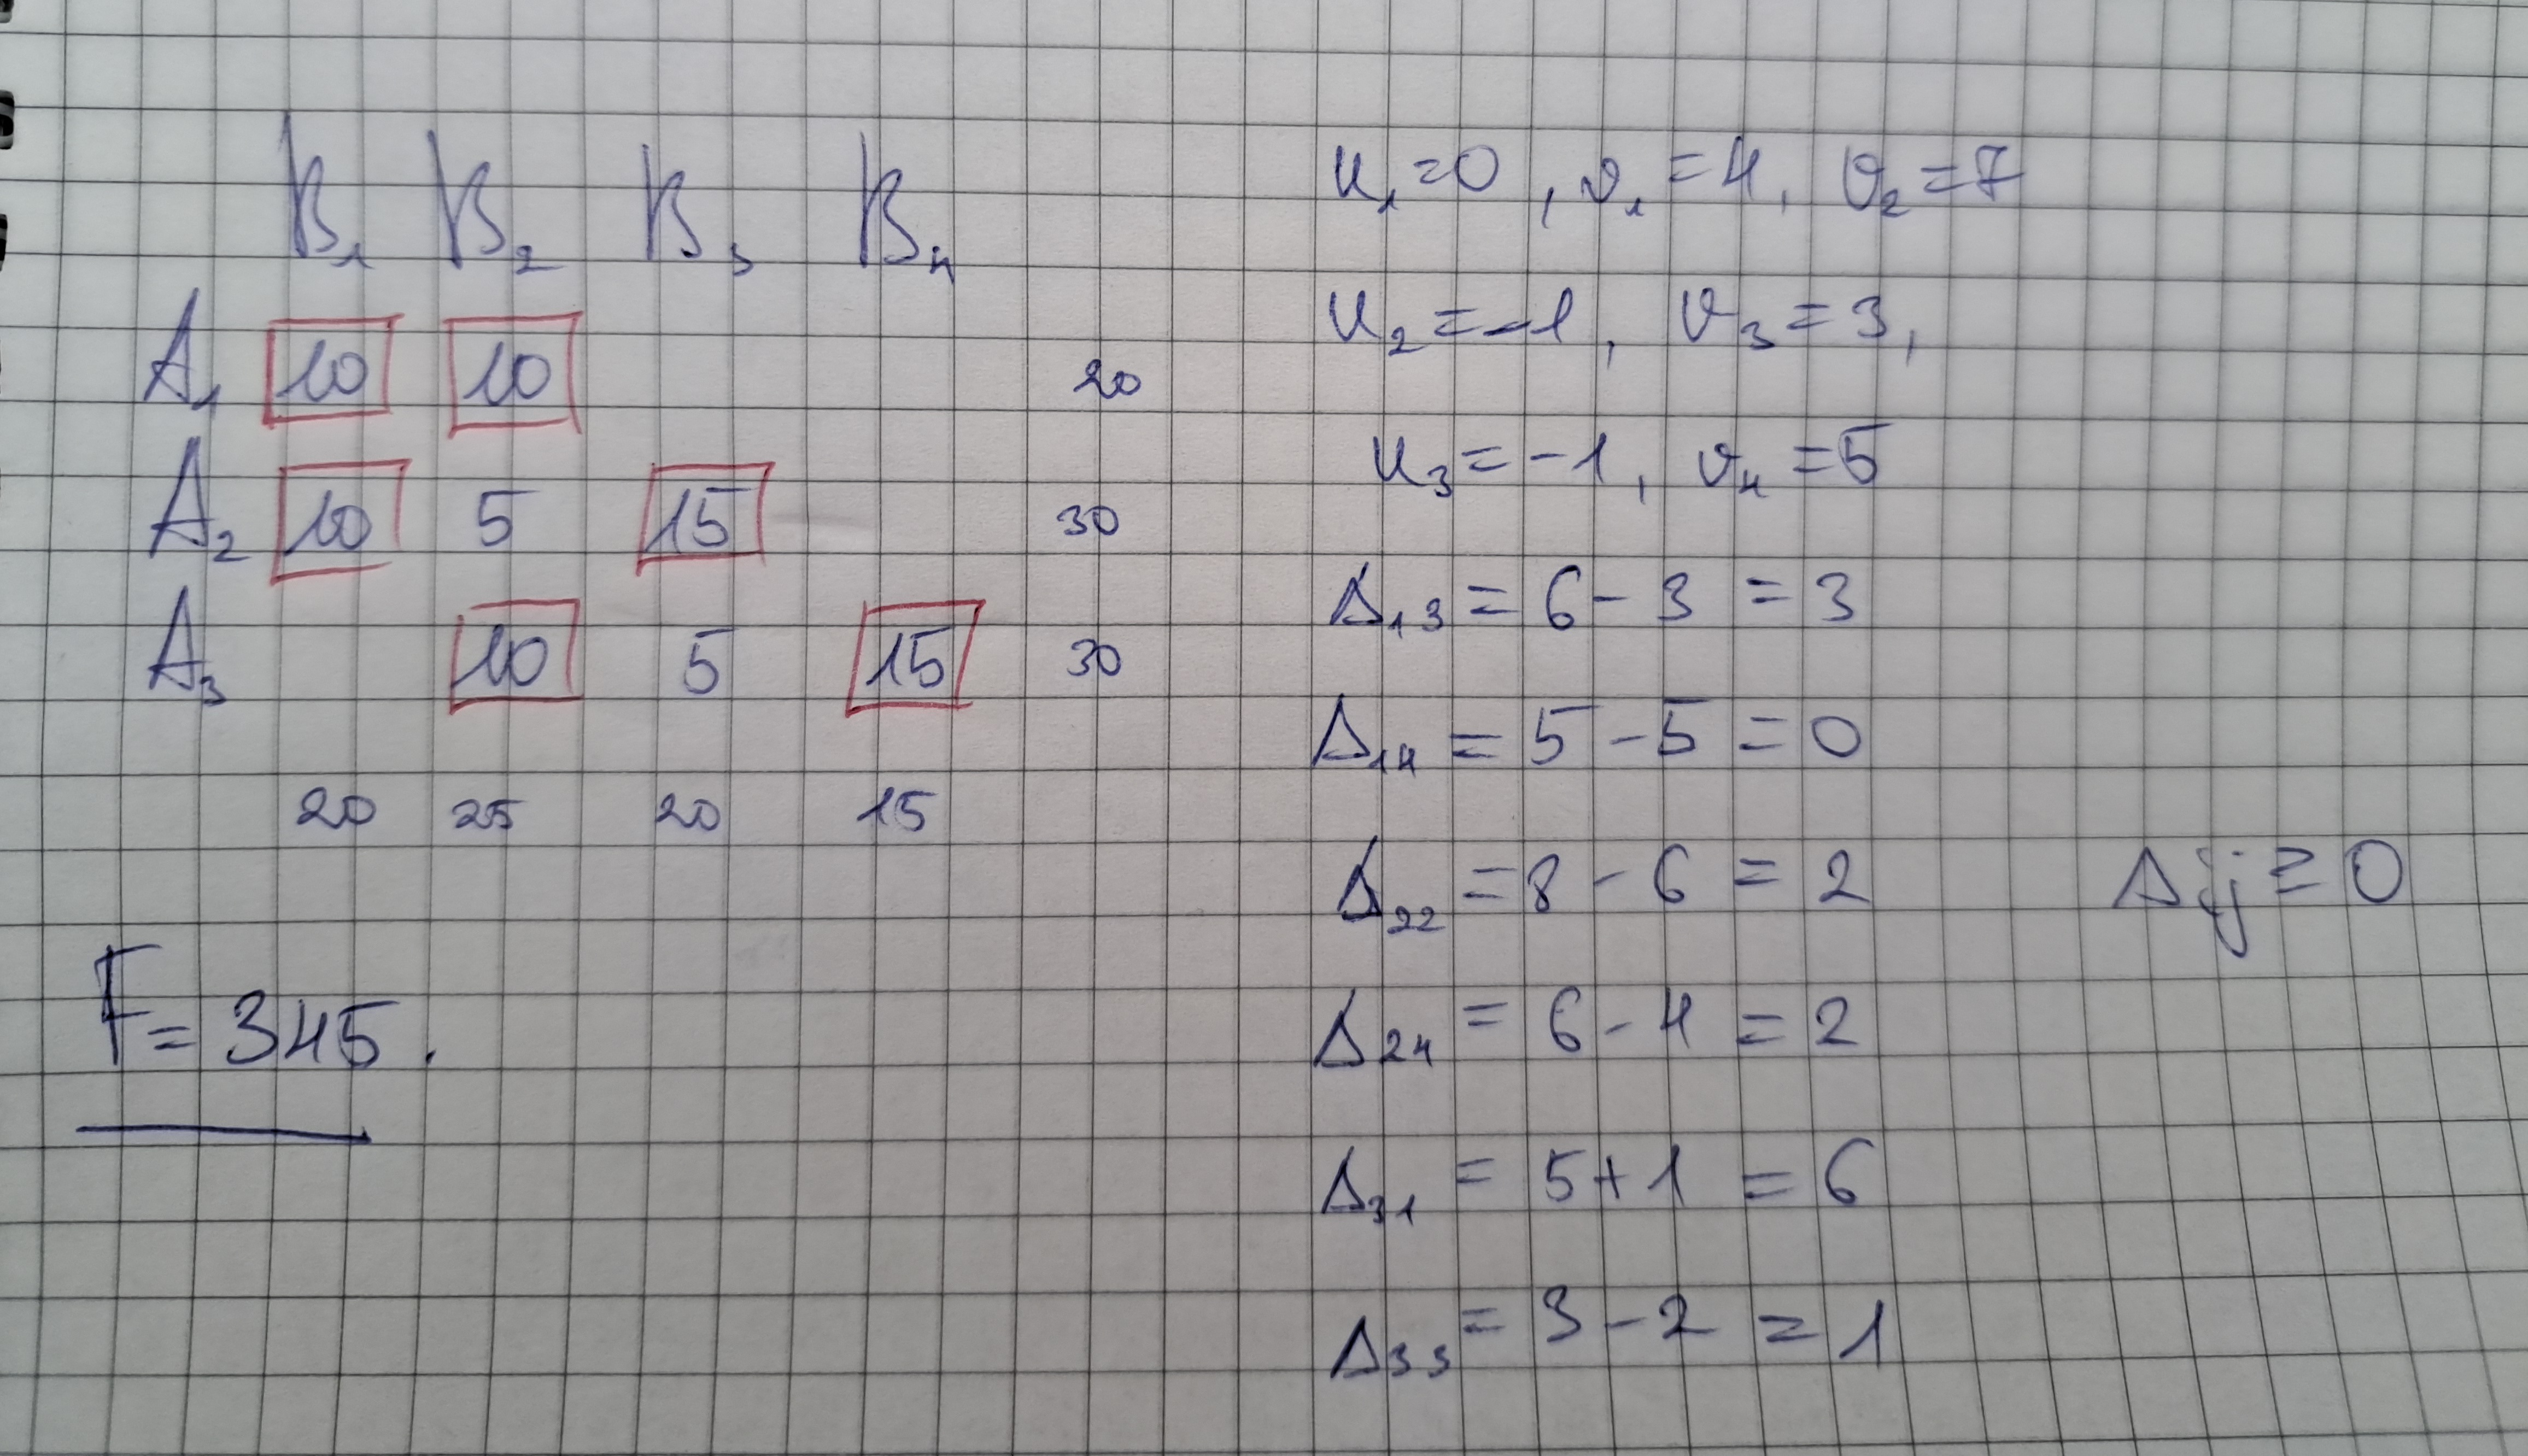 B₁ B₂ B₃ B₄
A₁ 10 10 20
A₂ 10 5 15 30
A₃ 10 5 15 30
20 25 20 15
F = 345.
u₁ = 0, v₁ = 4, v₂ = 7
u₂ = -1, v₃ = 3,
u₃ = -1, v₄ = 5
Δ₁₃ = 6 - 3 = 3
Δ₁₄ = 5 - 5 = 0
Δ₂₂ = 8 - 6 = 2
Δij ≥ 0
Δ₂₄ = 6 - 4 = 2
Δ₃₁ = 5 + 1 = 6
Δ₃₃ = 3 - 2 = 1